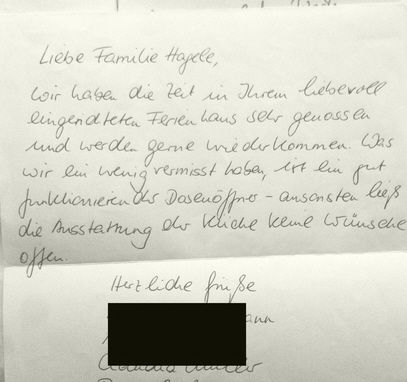 Liebe Familie Hagele,
wir haben die Zeit in Ihrem liebevoll
eingerichteten Ferienhaus sehr genossen
und werden gerne wiederkommen. Was
wir ein wenig vermisst haben, ist ein gut
funktionierender Dosenöffner - ansonsten ließ
die Ausstattung der Küche keine Wünsche
offen.
Herzliche Grüße